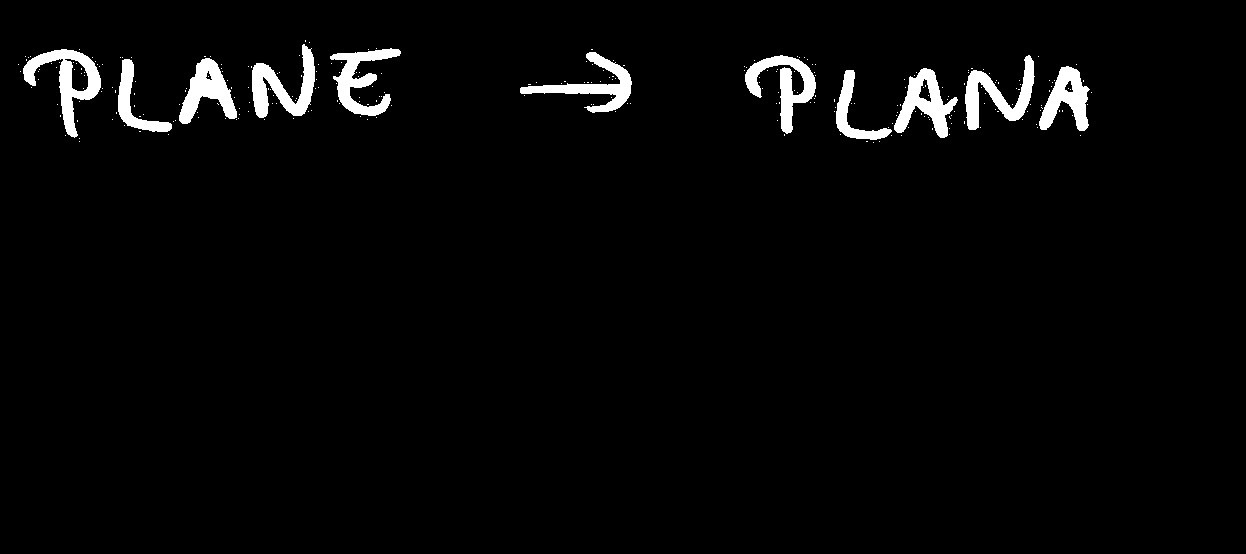 PLANE → PLANA